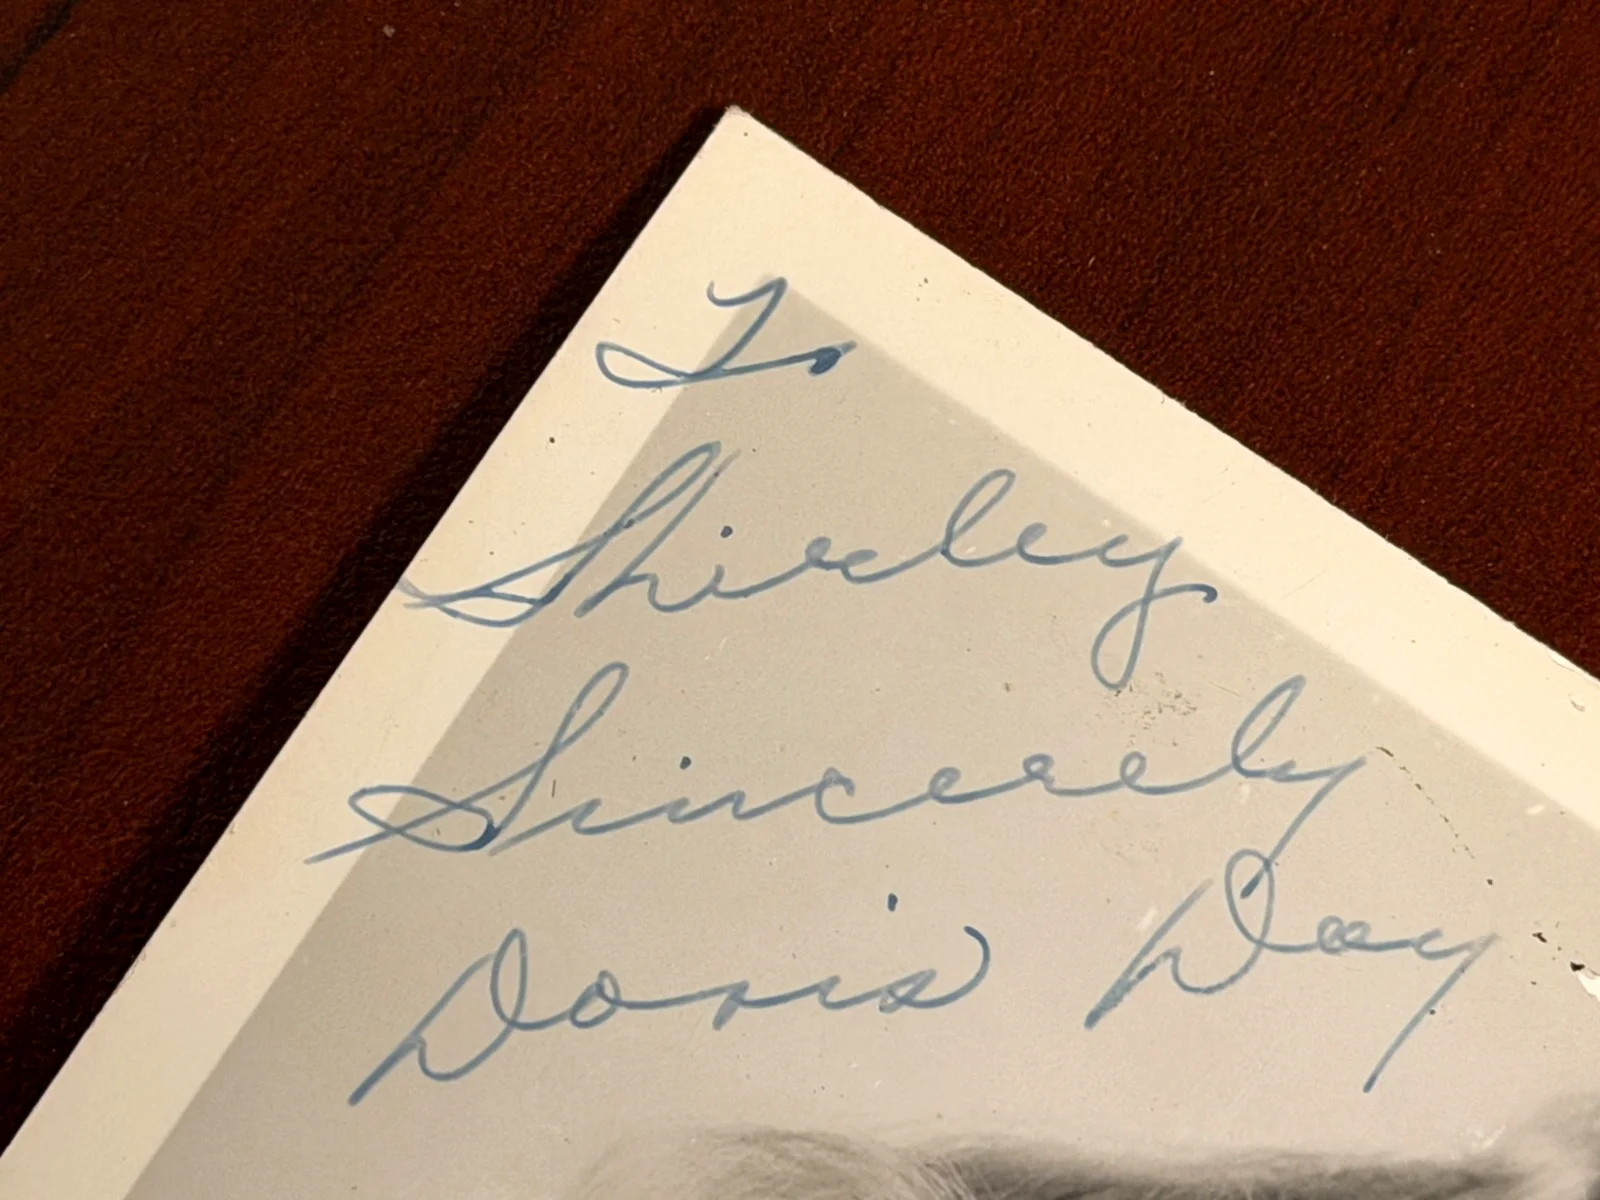 To
Shirley
Sincerely
Doris Day